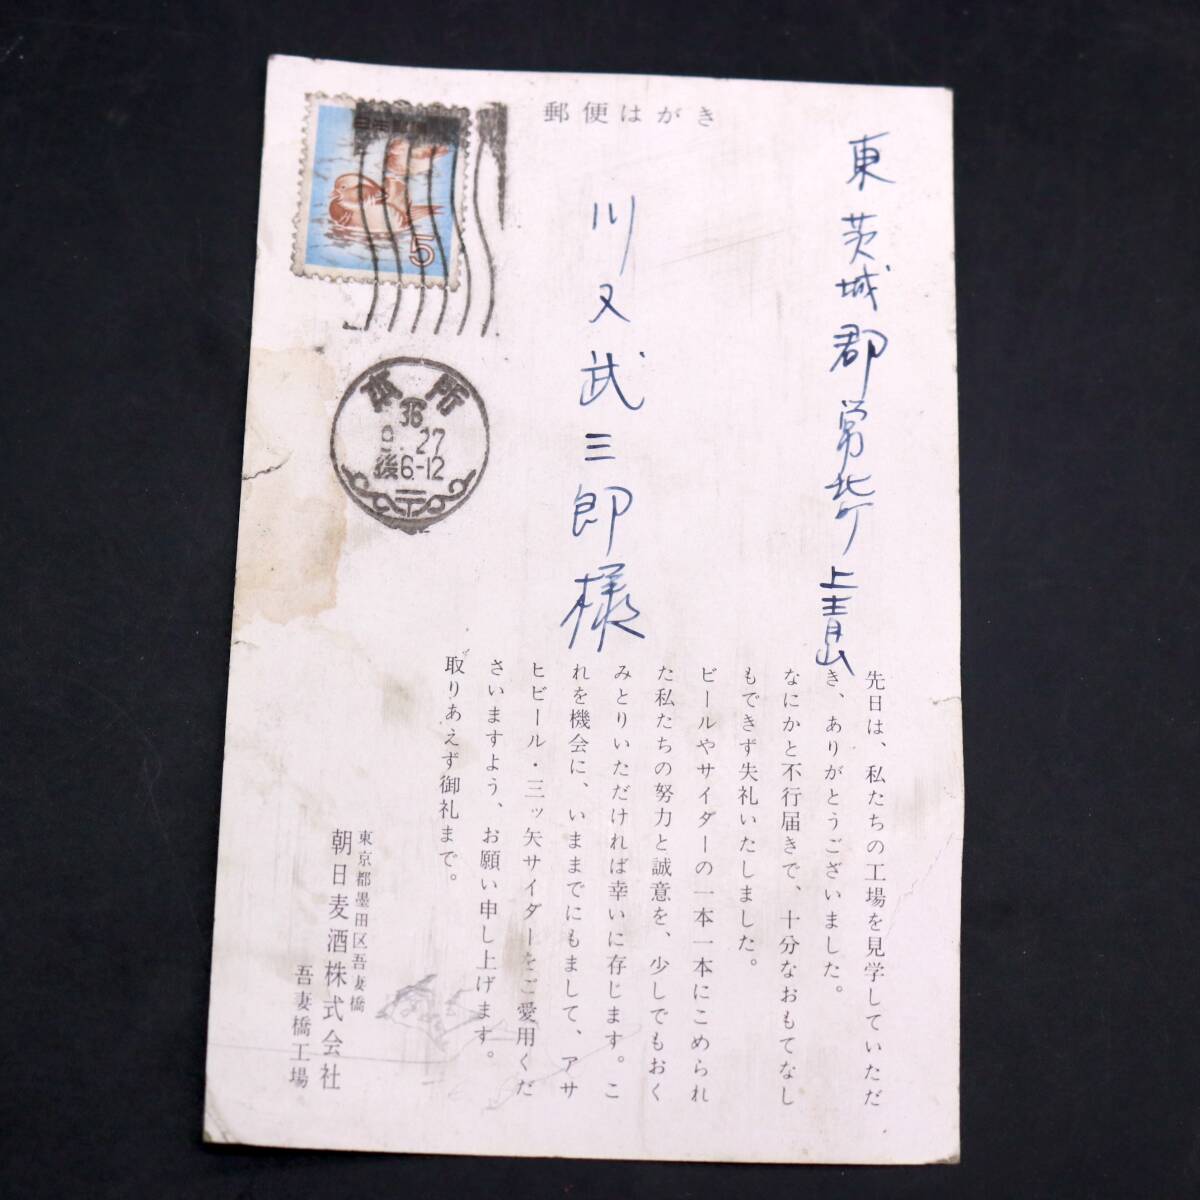 郵便はがき
日本郵便
5
本所
36
9.27
後6-12
東茨城郡常北町
上青山
川又武三郎様
先日は、私たちの工場を見学していただ
き、ありがとうございました。
なにかと不行届きで、十分なおもてなし
もできず失礼いたしました。
ビールやサイダーの一本一本にこめられ
た私たちの努力と誠意を、少しでもおく
みとりいただければ幸いに存じます。こ
れを機会に、いままでにもまして、アサ
ヒビール・三ッ矢サイダーをご愛用くだ
さいますよう、お願い申し上げます。
取りあえず御礼まで。
東京都墨田区吾妻橋
朝日麦酒株式会社
吾妻橋工場